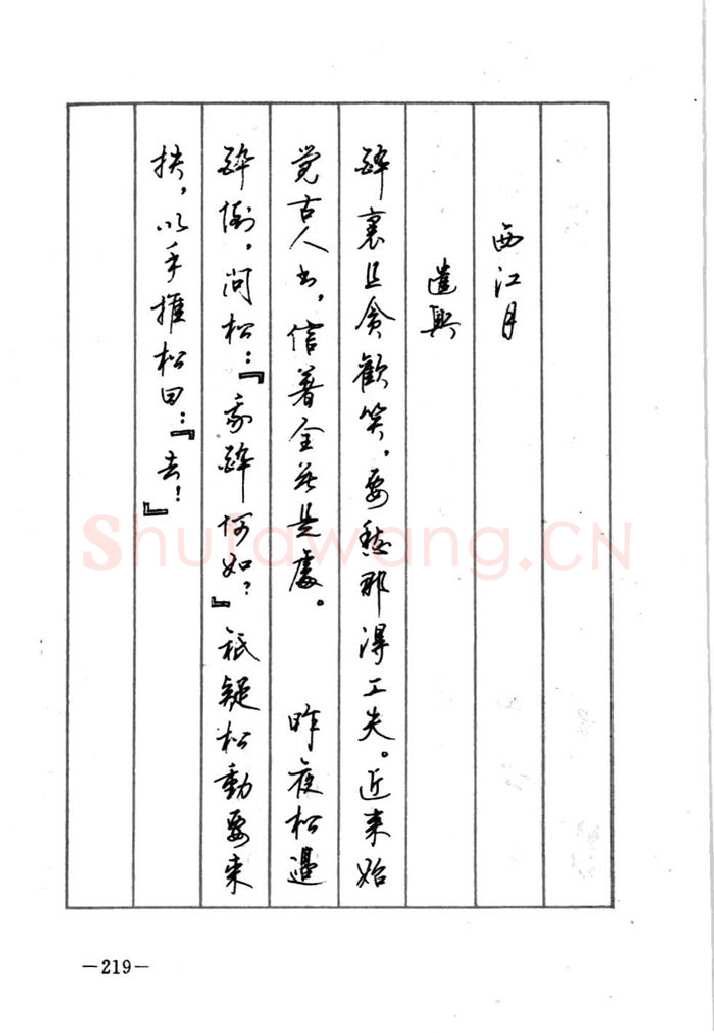 西江月
遣興
醉裏且貪歡笑，要愁那得工夫。近来始
觉古人书，信著全无是處。　昨夜松邊
醉倒，问松：『我醉何如？』祇疑松動要来
扶，以手推松曰：『去！』
Shufawang.CN
—219—